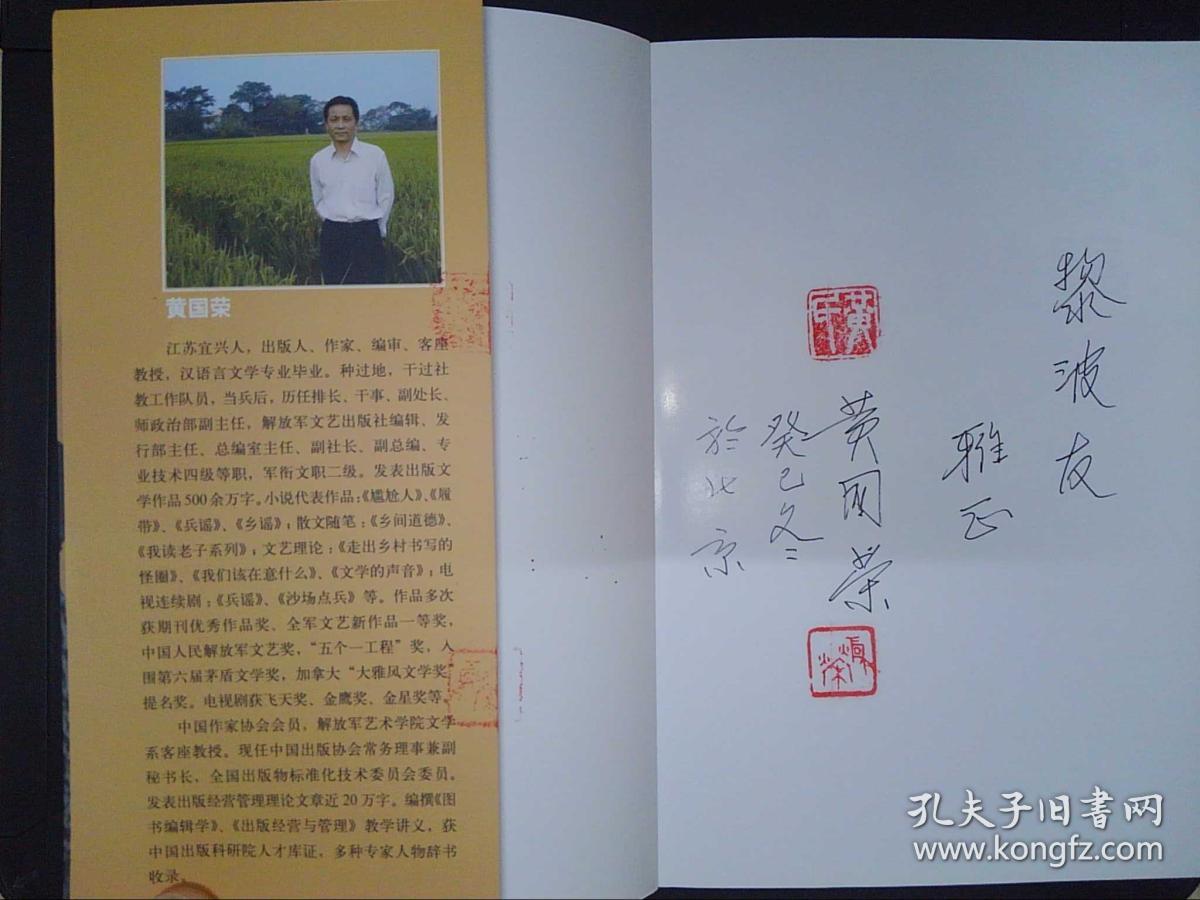 黄国荣
江苏宜兴人，出版人、作家、编审、客座
教授，汉语言文学专业毕业。种过地，干过社
教工作队员，当兵后，历任排长、干事、副处长、
师政治部副主任，解放军文艺出版社编辑、发
行部主任、总编室主任、副社长、副总编、专
业技术四级等职，军衔文职二级。发表出版文
学作品500余万字。小说代表作品：《尴尬人》、《履
带》、《兵谣》、《乡谣》；散文随笔：《乡间道德》、
《我读老子系列》；文艺理论：《走出乡村书写的
怪圈》、《我们该在意什么》、《文学的声音》；电
视连续剧：《兵谣》、《沙场点兵》等。作品多次
获期刊优秀作品奖、全军文艺新作品一等奖，
中国人民解放军文艺奖，“五个一工程”奖，入
围第六届茅盾文学奖，加拿大“大雅风文学奖”
提名奖。电视剧获飞天奖、金鹰奖、金星奖等。
中国作家协会会员，解放军艺术学院文学
系客座教授。现任中国出版协会常务理事兼副
秘书长，全国出版物标准化技术委员会委员。
发表出版经营管理理论文章近20万字。编撰《图
书编辑学》、《出版经营与管理》教学讲义，获
中国出版科研院人才库证，多种专家人物辞书
收录。
黎波友
雅正
黄国荣
癸巳冬
於北京
孔夫子旧书网
www.kongfz.com